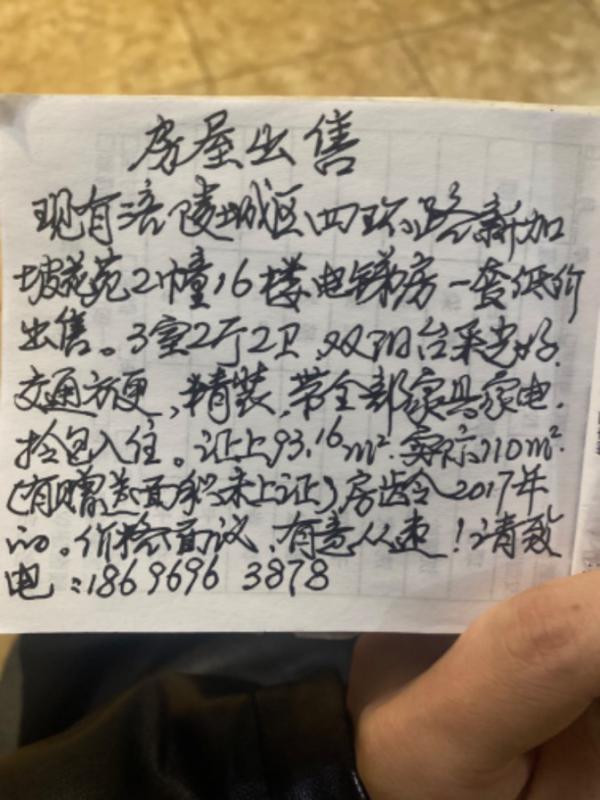 房屋出售
现有涪陵城区四环路新加
坡花苑2幢16楼电梯房一套低价
出售。3室2厅2卫,双阳台采光好.
交通方便,精装,带全部家具家电.
拎包入住。证上93.16m².实际110m².
(有赠送面积未上证)房龄2017年
的。价格面议,有意从速!请致
电:186 9696 3878